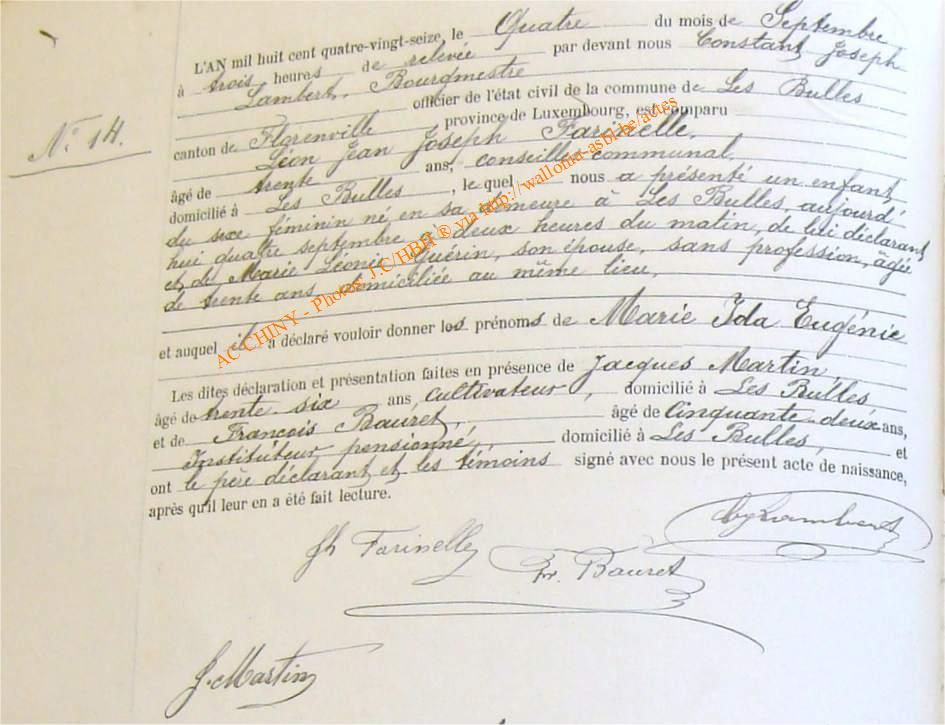 L'AN mil huit cent quatre-vingt-seize, le Quatre du mois de Septembre
à trois heures de relevée par devant nous Constant Joseph
Lambert, Bourgmestre
officier de l'état civil de la commune de Les Bulles
N° 14.
canton de Florenville province de Luxembourg, est comparu
Léon Jean Joseph Farinelle,
âgé de trente ans, conseiller communal,
domicilié à Les Bulles, le quel nous a présenté un enfant
du sexe féminin né en sa demeure à Les Bulles, aujourd'
hui quatre septembre à deux heures du matin, de lui déclarant
et de Marie Léonie Guérin, son épouse, sans profession, âgée
de trente ans domiciliée au même lieu,
et auquel il a déclaré vouloir donner les prénoms de Marie Ida Eugénie
Les dites déclaration et présentation faites en présence de Jacques Martin,
âgé de trente six ans, Cultivateur, domicilié à Les Bulles
et de François Bauret, âgé de Cinquante-deux ans,
Instituteur pensionné, domicilié à Les Bulles, et
ont le père déclarant et les témoins signé avec nous le présent acte de naissance,
après qu'il leur en a été fait lecture.
AC CHINY - Photos J.C/HBH ® via http://wallonia-asbl.be/actes
Lambert
Jh Farinelle
Fr. Bauret
J. Martin